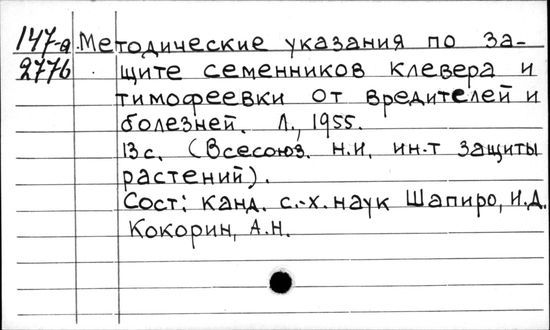 147-а Методические указания по за-
2776 щите семенников клевера и
тимофеевки от вредителей и
болезней. Л., 1955.
13с. (Всесоюз. н.и. ин-т защиты
растений).
Сост: канд. с.-х. наук Шапиро, И.Д.
Кокорин, А.Н.